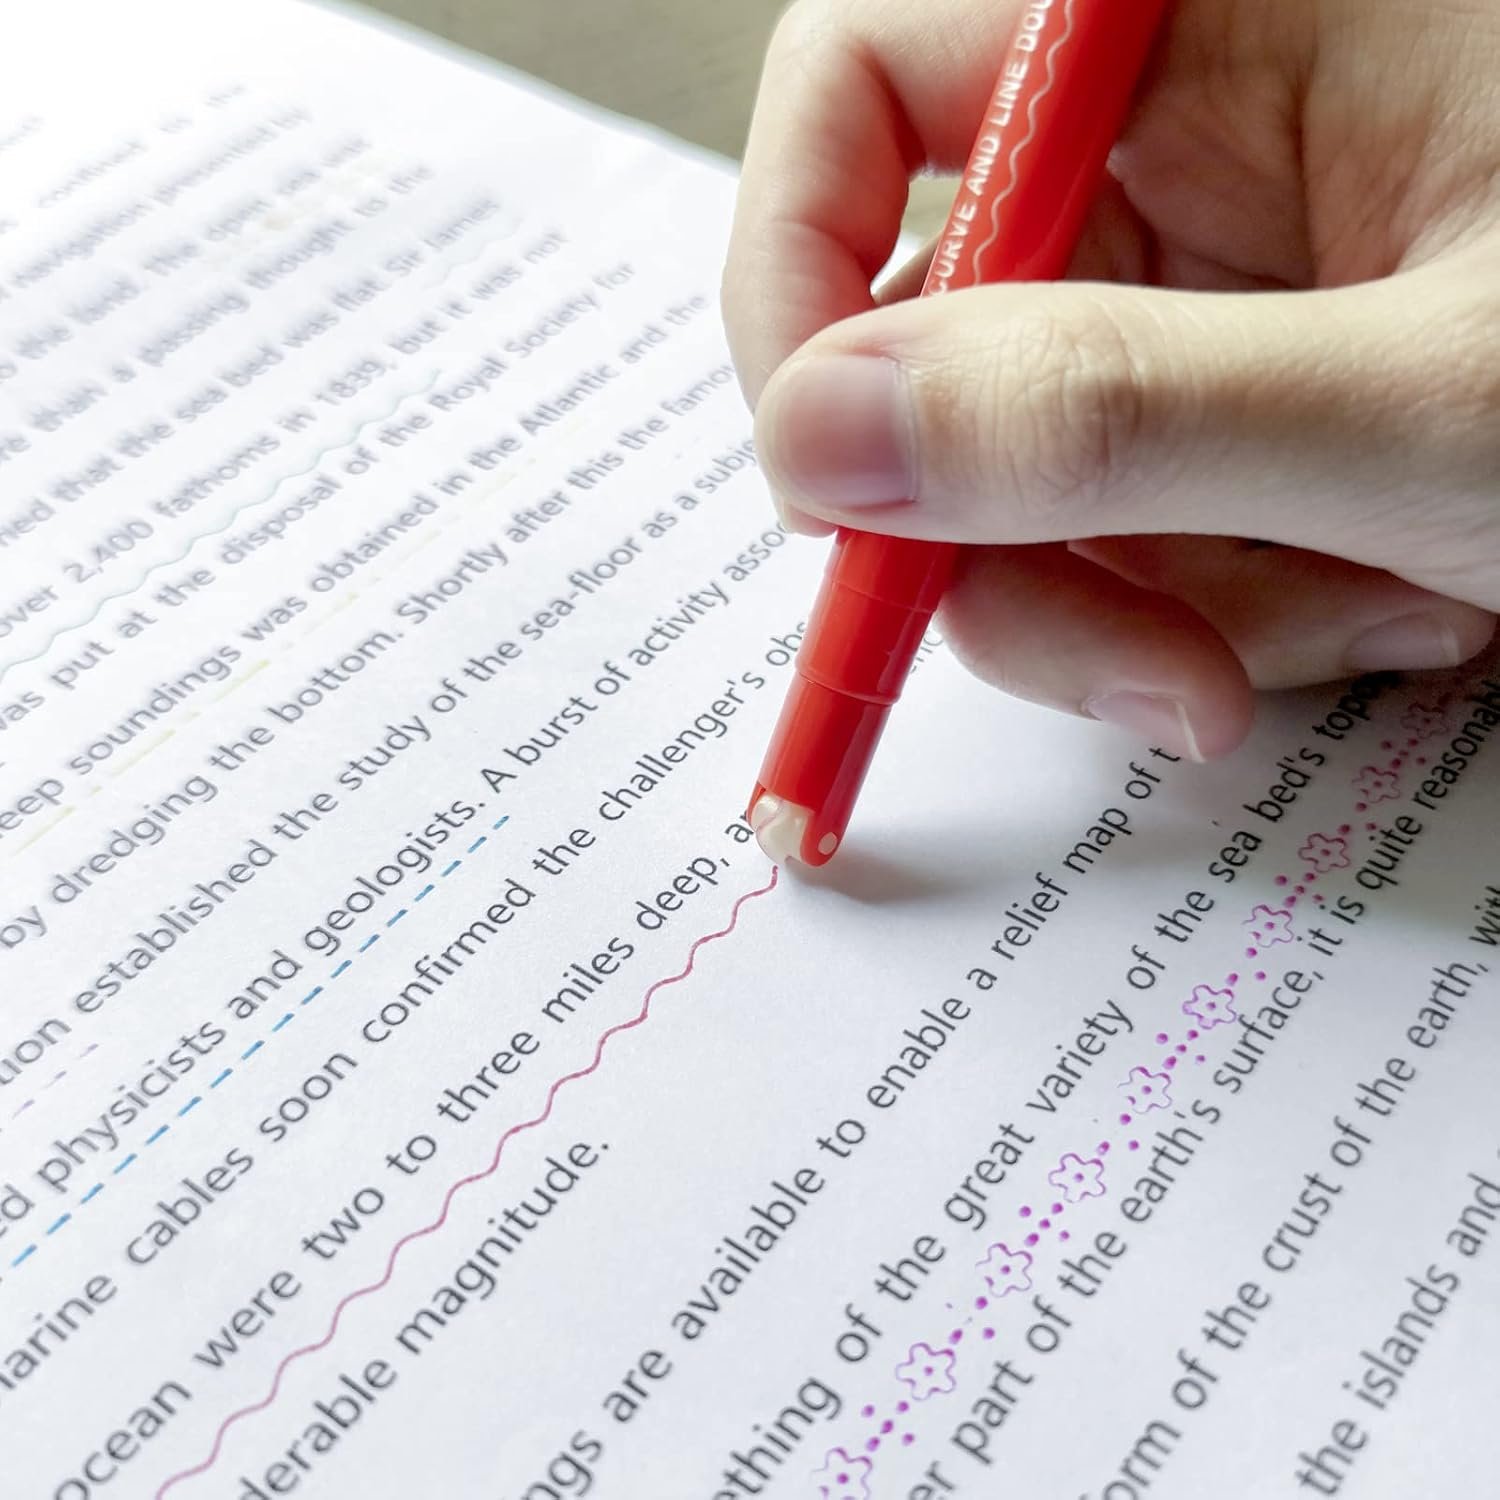 CURVE AND LINE
confined to the
navigation presented by
the land. The open sea
than a passing thought to the
that the sea bed was flat. Sir James
over 2,400 fathoms in 1839, but it was not
was put at the disposal of the Royal Society for
soundings was obtained in the Atlantic and the
by dredging the bottom. Shortly after this the
established the study of the sea-floor as a
physicists and geologists. A burst of activity
cables soon confirmed the challenger's
ocean were two to three miles deep,
magnitude.
are available to enable a relief map of
of the great variety of the sea bed's
part of the earth's surface, it is quite
of the crust of the earth,
the islands and